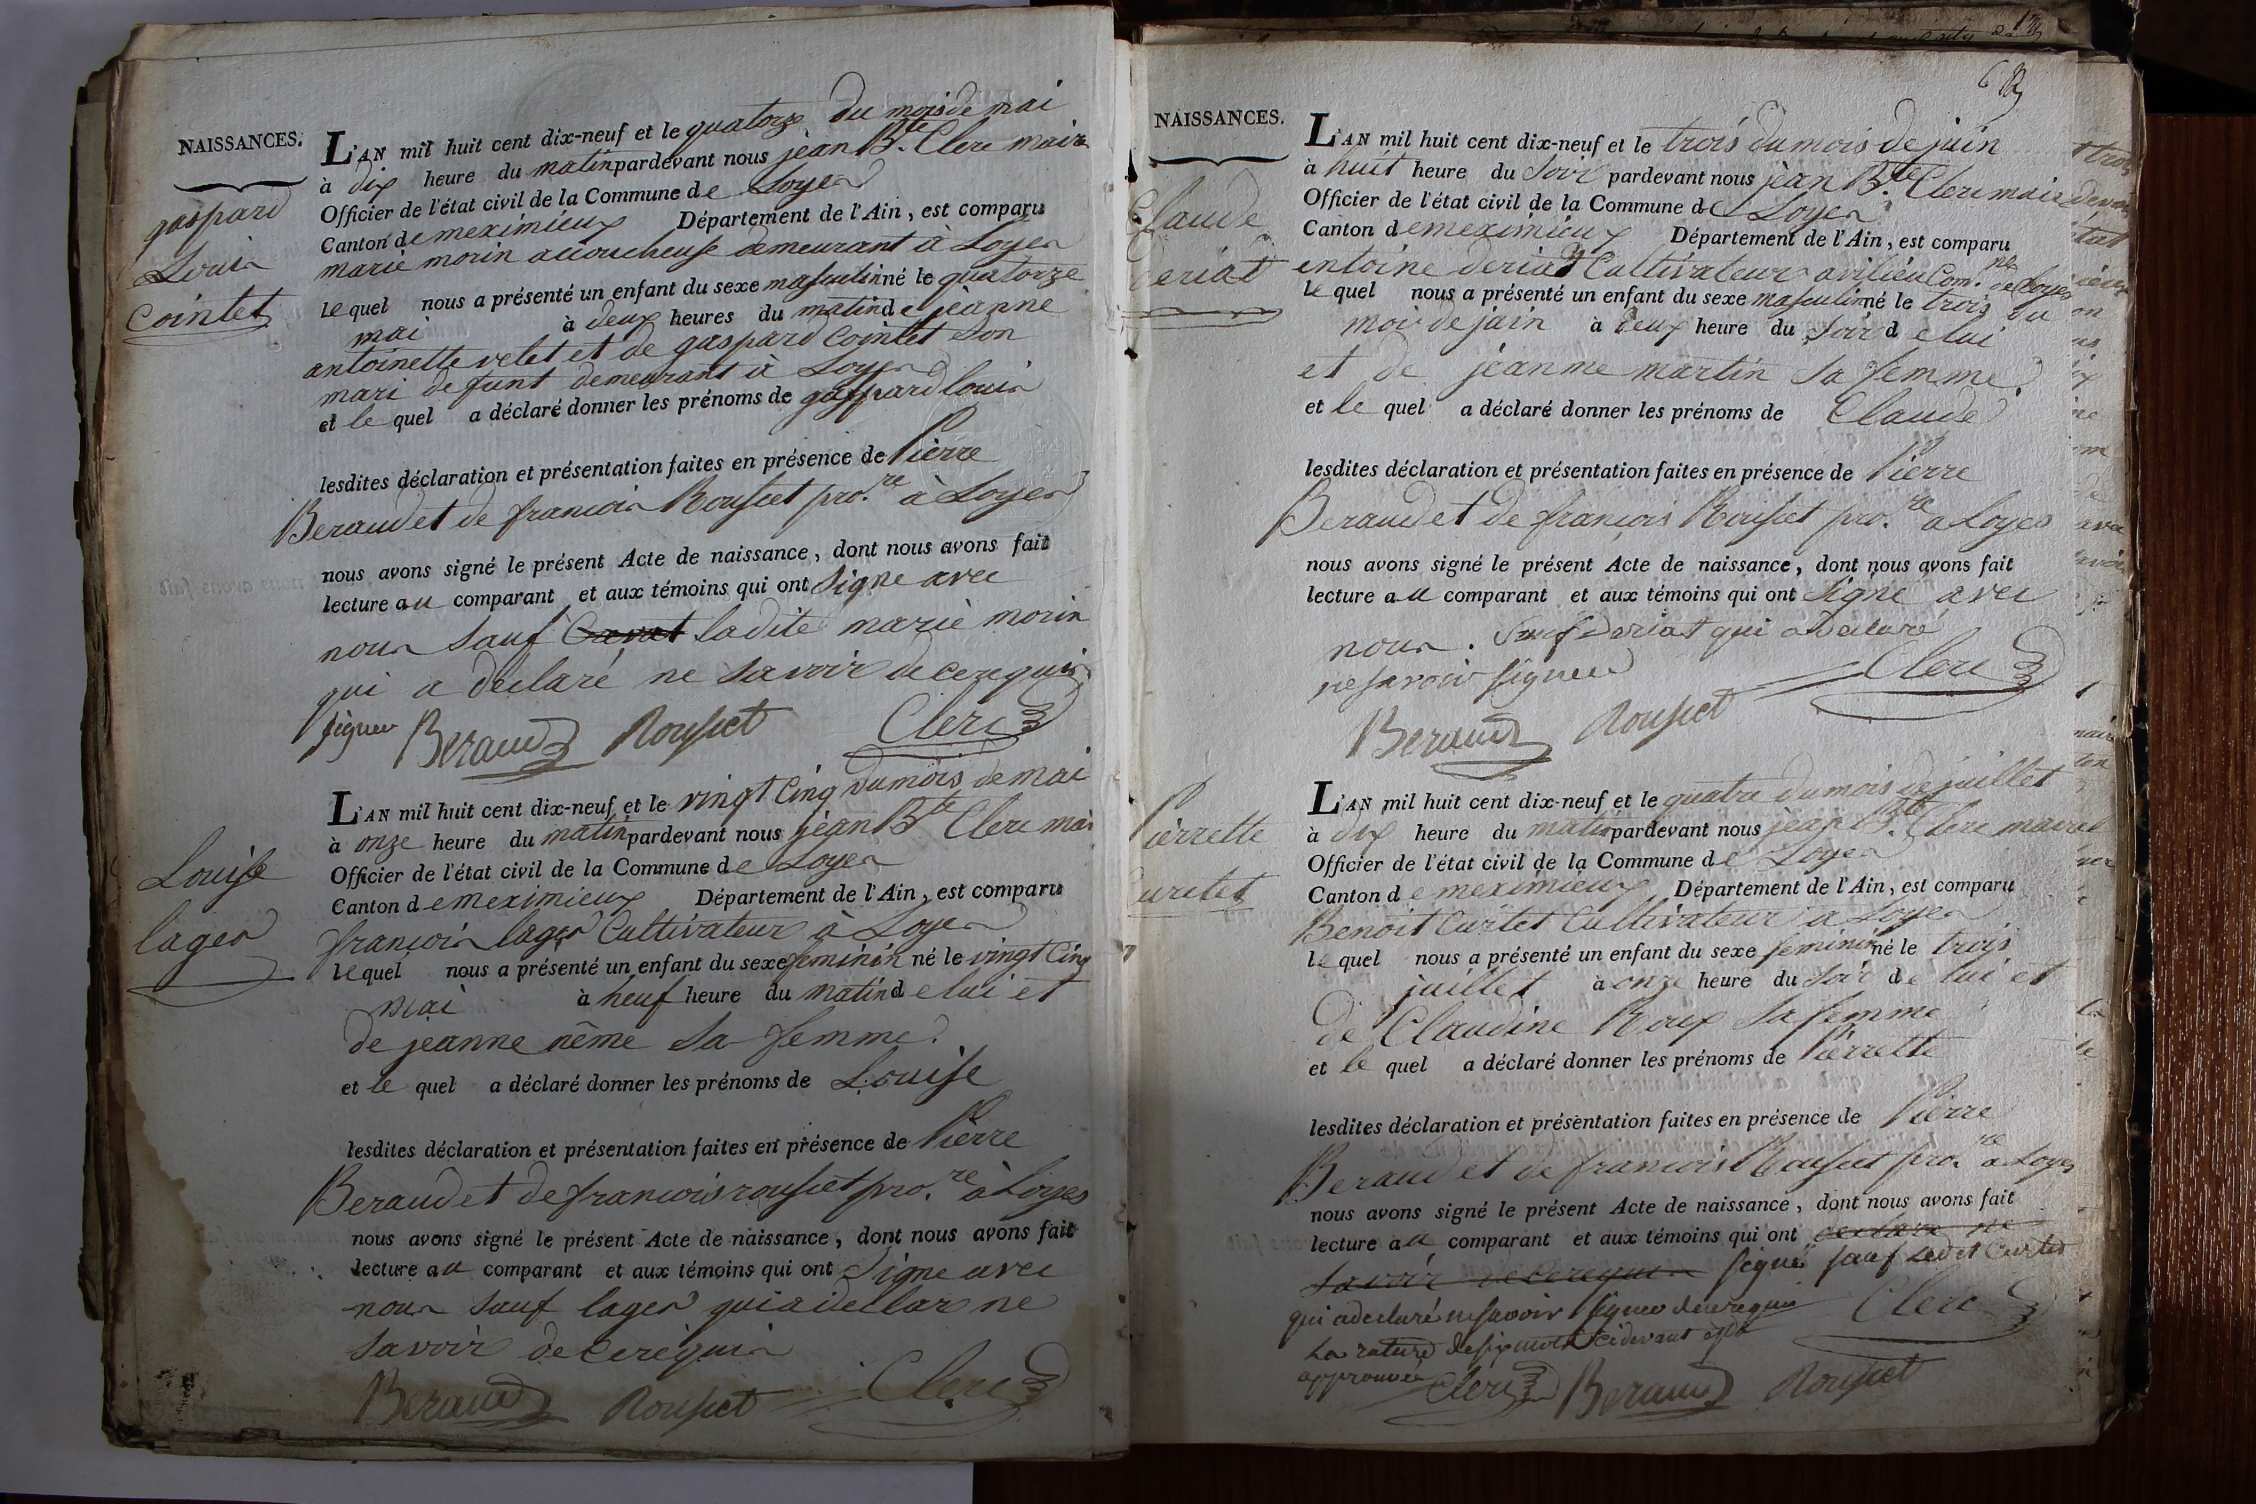 NAISSANCES.
gaspard
Louis
Cointet
L'AN mil huit cent dix-neuf et le quatorze du mois de mai
à dix heure du matin pardevant nous jean Bte. Clerc maire
Officier de l'état civil de la Commune de Loyes
Canton de meximieux Département de l'Ain, est comparu
marie morin accoucheuse demeurant à Loyes
lequel nous a présenté un enfant du sexe masculin né le quatorze
mai à deux heures du matin de jeanne
antoinette velet et de gaspard Cointet son
mari defunt demeurant à Loyes
et le quel a déclaré donner les prénoms de gaspard louis
lesdites déclaration et présentation faites en présence de Pierre
Beraud et de francois Rousset pro.re à Loyes
nous avons signé le présent Acte de naissance, dont nous avons fait
lecture au comparant et aux témoins qui ont signe avec
nous sauf ladite marie morin
qui a declaré ne savoir de ce requis
signer Beraud Rousset Clerc
Louise
lager
L'AN mil huit cent dix-neuf et le vingt Cinq du mois de mai
à onze heure du matin pardevant nous jean Bte Clerc mai
Officier de l'état civil de la Commune de Loyes
Canton de meximieux Département de l'Ain, est comparu
francois lager Cultivateur à Loyes
lequel nous a présenté un enfant du sexe feminin né le vingt Cinq
mai à neuf heure du matin de lui et
de jeanne nême sa femme
et le quel a déclaré donner les prénoms de Louise
lesdites déclaration et présentation faites en présence de Pierre
Beraud et de francois rousset pro.re à Loyes
nous avons signé le présent Acte de naissance, dont nous avons fait
lecture au comparant et aux témoins qui ont signe avec
nous sauf lager qui a declar ne
savoir de ce requis
Beraud Rousset Clerc
NAISSANCES.
Claude
deriat
L'AN mil huit cent dix-neuf et le trois du mois de juin
à huit heure du soir pardevant nous jean Bte. Clerc maire
Officier de l'état civil de la Commune de Loyes
Canton de meximieux Département de l'Ain, est comparu
entoine deriat Cultivateur a vilieu Com.ne de Loyes
le quel nous a présenté un enfant du sexe masculin né le trois du
mois de juin à deux heure du soir de lui
et de jeanne martin sa femme
et le quel a déclaré donner les prénoms de Claude
lesdites déclaration et présentation faites en présence de Pierre
Beraud et de françois Rousset pro.re a Loyes
nous avons signé le présent Acte de naissance, dont nous avons fait
lecture au comparant et aux témoins qui ont signé avec
nous. sauf deriat qui a declaré
ne savoir signer Clerc
Beraud Rousset
Pierrette
Curtet
L'AN mil huit cent dix-neuf et le quatre du mois de juillet
à dix heure du matin pardevant nous jean Bte. Clerc maire
Officier de l'état civil de la Commune de Loyes
Canton de meximieux Département de l'Ain, est comparu
Benoit Curtet Cultivateur a Loyes
le quel nous a présenté un enfant du sexe feminin né le trois
juillet à onze heure du soir de lui et
de Claudine Roux sa femme
et le quel a déclaré donner les prénoms de Pierrette
lesdites déclaration et présentation faites en présence de Pierre
Beraud et de francois Rousset pro.re a Loyes
nous avons signé le présent Acte de naissance, dont nous avons fait
lecture au comparant et aux témoins qui ont declaré ne
savoir de ce requis signé sauf ledit Curtet
qui a declaré ne savoir signer de ce requis Clerc
La rature de six mots cidevant est
approuvée Clerc Beraud Rousset